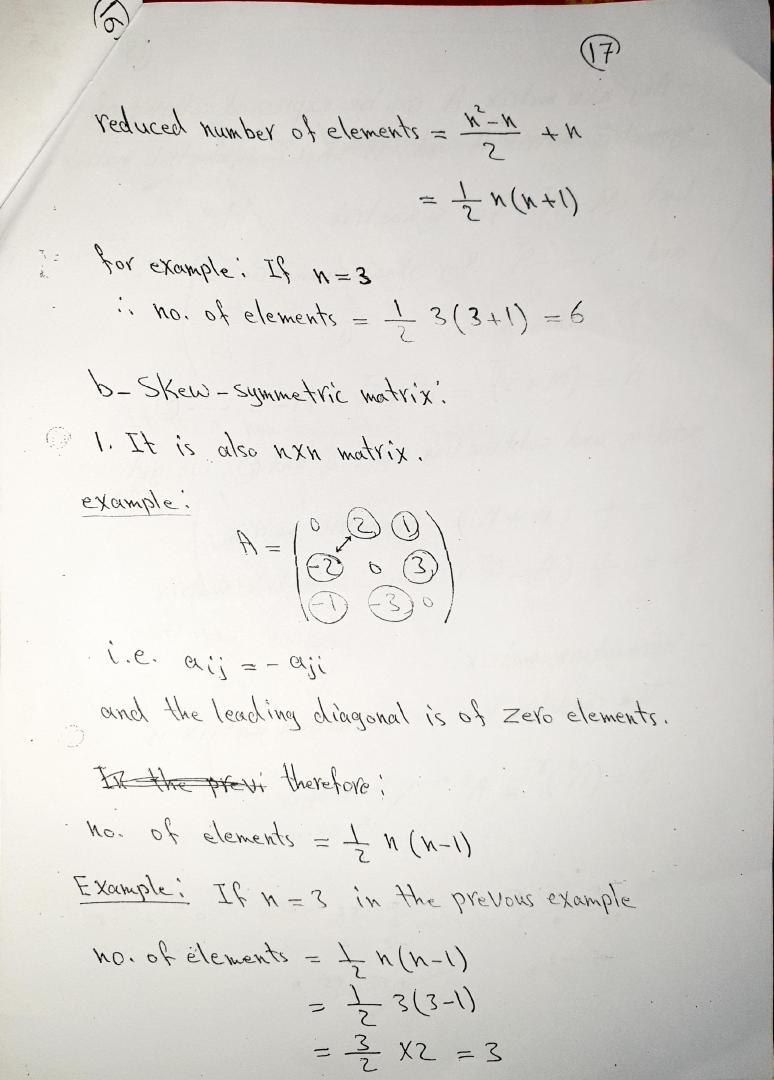 16
17
reduced number of elements = \frac{n^2-n}{2} + n
= \frac{1}{2} n(n+1)
for example: If n=3
∴ no. of elements = \frac{1}{2} 3(3+1) = 6
b- Skew-symmetric matrix:
1. It is also nxn matrix.
example:
A = \begin{pmatrix} 0 & 2 & 1 \\ -2 & 0 & 3 \\ -1 & -3 & 0 \end{pmatrix}
i.e. aij = - aji
and the leading diagonal is of zero elements.
In the previ therefore;
no. of elements = \frac{1}{2} n (n-1)
Example: If n=3 in the prevous example
no. of elements = \frac{1}{2} n(n-1)
= \frac{1}{2} 3(3-1)
= \frac{3}{2} x2 = 3